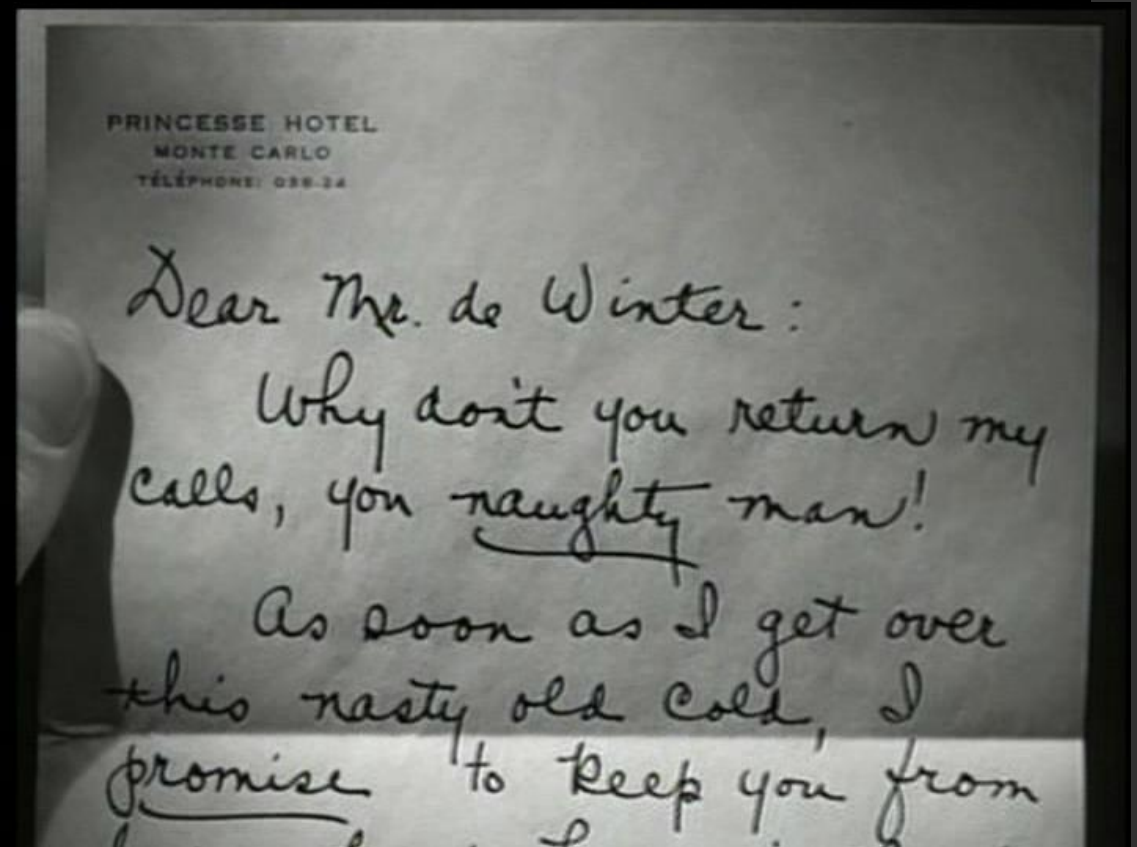 PRINCESSE HOTEL
MONTE CARLO
TÉLÉPHONE: 036-24
Dear Mr. de Winter:
Why don't you return my
calls, you naughty man!
As soon as I get over
this nasty old cold, I
promise to keep you from